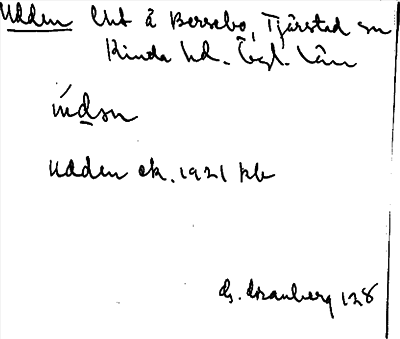 Udden lht å Bersebo, Tjärstad sn
Kinda hd. Ögl. län
ùdn
Udden ek. 1921 kb
G. Franberg 128